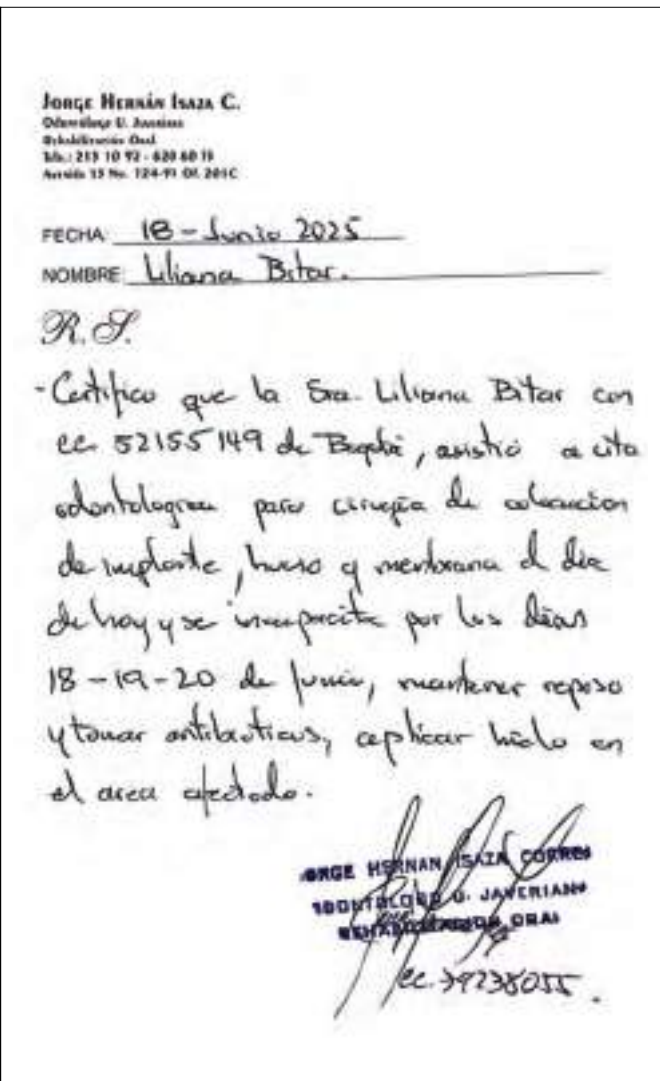 JORGE HERNÁN ISAZA C.
Odontólogo U. Javeriana
Rehabilitación Oral
Tels.: 213 10 92 - 620 60 15
Avenida 15 No. 124-91 Of. 201C
FECHA: 18 - Junio 2025
NOMBRE: Liliana Bitar.
R. S.
- Certifico que la Sra. Liliana Bitar con
cc. 52155149 de Bogotá, asistió a cita
odontologica para cirugía de colocación
de implante, hueso y membrana el dia
de hoy y se incapacita por los días
18 - 19 - 20 de Junio, mantener reposo
y tomar antibioticos, aplicar hielo en
el area afectada.
JORGE HERNAN ISAZA CORREA
ODONTOLOGO U. JAVERIANA
REHABILITACION ORAL
cc.